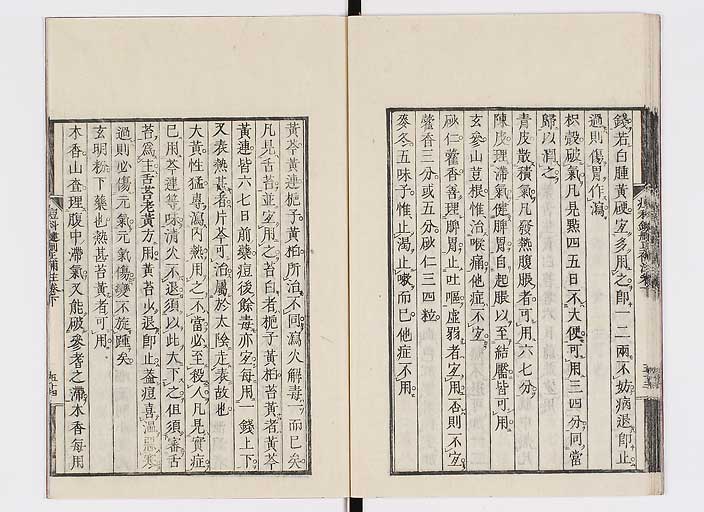 錢若白腫黃硬宐多用之卽一二兩不妨病退卽止
過則傷胃作瀉
枳殼破氣凡見點四五日不大便可用三四分同當
歸以潤之
青皮散積氣凡發熱腹脹者可用六七分
陳皮理滯氣健脾胃自起脹以至結靨皆可用
玄參山荳根惟治喉痛他症不宐
砂仁藿香善理脾胃止吐嘔虛弱者宐用否則不宐
藿香三分或五分砂仁三四粒
麥冬五味子惟止渴止嗽而已他症不用
黃芩黃連梔子黃柏所治不同瀉火解毒而已矣
凡見舌苔並宐用之苔白者梔子黃柏苔黃者黃芩
黃連皆六七日前藥痘後餘毒亦宐每用一錢上下
又表熱甚者片芩可治屬於太陰走表故也
大黃性猛專瀉內熱用之不當必至殺人凡見實症
已用芩連等味清火不退須以此大下之但須審舌
苔爲主舌苔老黃方用黃苔少退卽止蓋痘喜溫惡寒
過則必傷元氣元氣傷變不旋踵矣
玄明粉下藥也熱甚苔黃者可用
木香山查理腹中滯氣又能破參耆之滯木香每用
痘科鍵刪正補註卷下